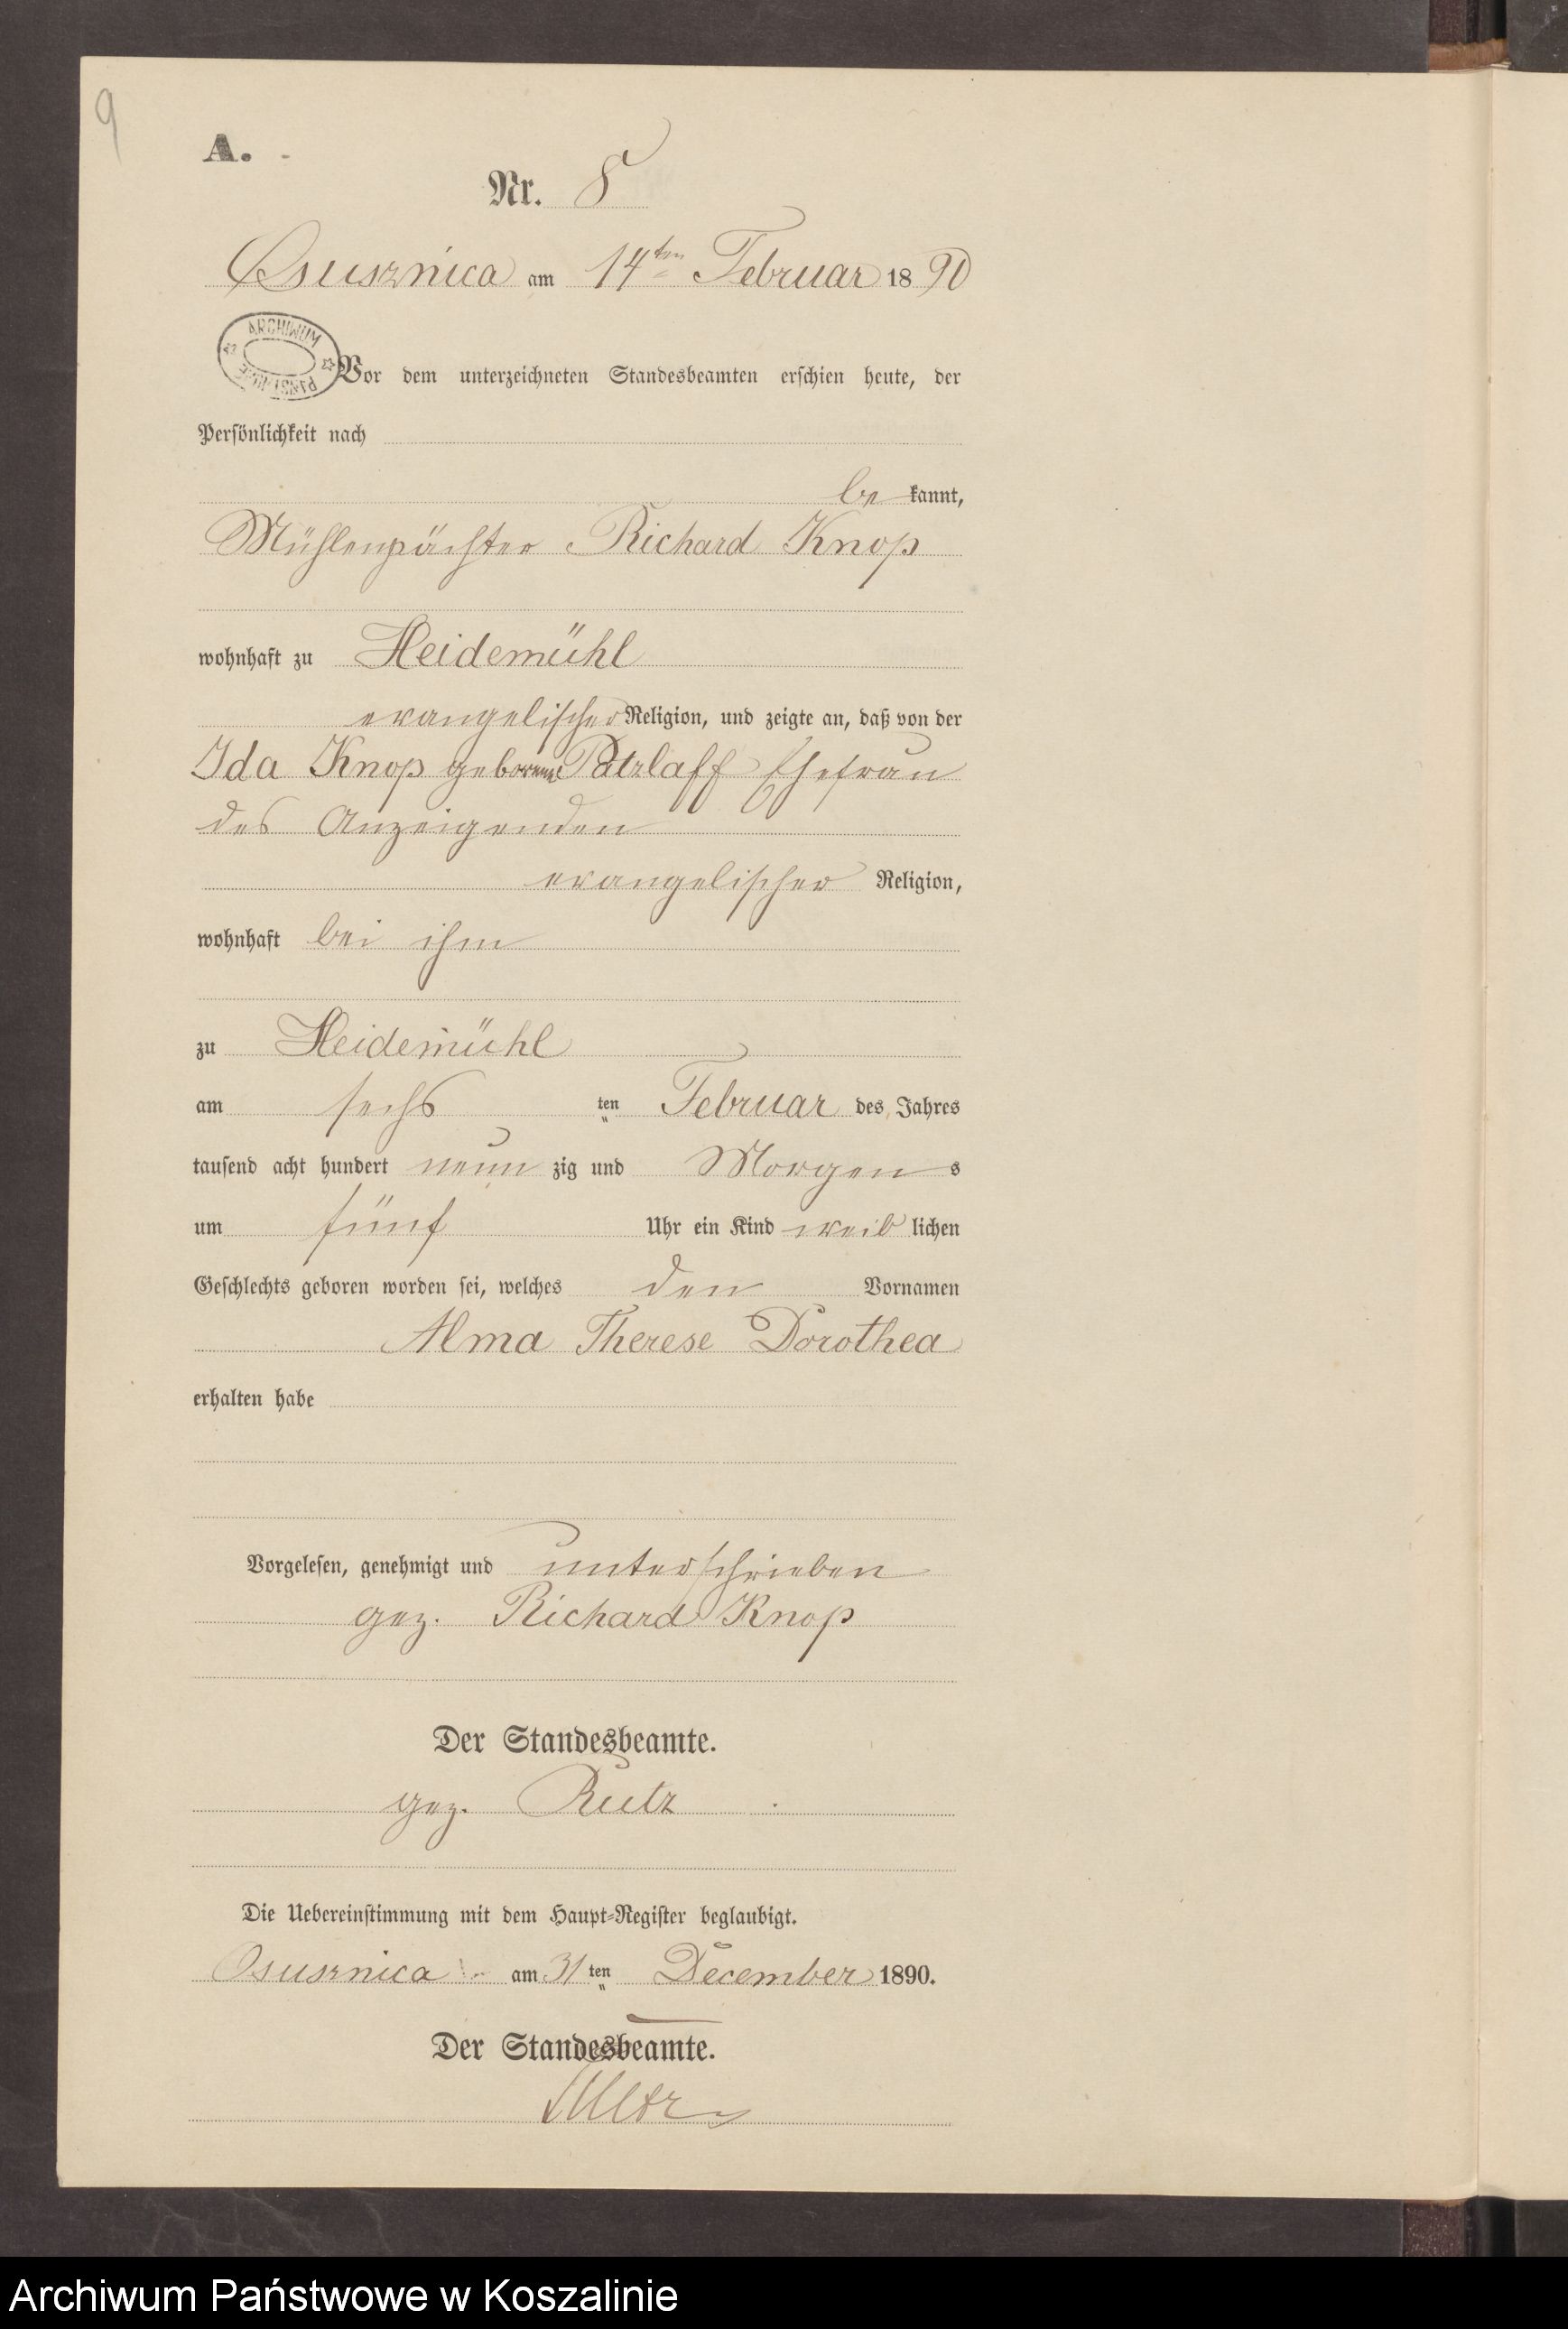 9
A.
Nr. 8
Osusznica am 14ten Februar 1890
ARCHIWUM PAŃSTWOWE
Vor dem unterzeichneten Standesbeamten erschien heute, der
Persönlichkeit nach
be kannt,
Mühlenpächter Richard Knop
wohnhaft zu Heidemühl
evangelischer Religion, und zeigte an, daß von der
Ida Knop geborene Patzlaff Ehefrau
des Anzeigenden
evangelischer Religion,
wohnhaft bei ihm
zu Heidemühl
am sechs ten Februar des Jahres
tausend acht hundert neun zig und Morgens
um fünf Uhr ein Kind weiblichen
Geschlechts geboren worden sei, welches den Vornamen
Alma Therese Dorothea
erhalten habe
Vorgelesen, genehmigt und unterschrieben
gez. Richard Knop
Der Standesbeamte.
gez. Rutz
Die Uebereinstimmung mit dem Haupt-Register beglaubigt.
Osusznica am 31 ten December 1890.
Der Standesbeamte.
Archiwum Państwowe w Koszalinie